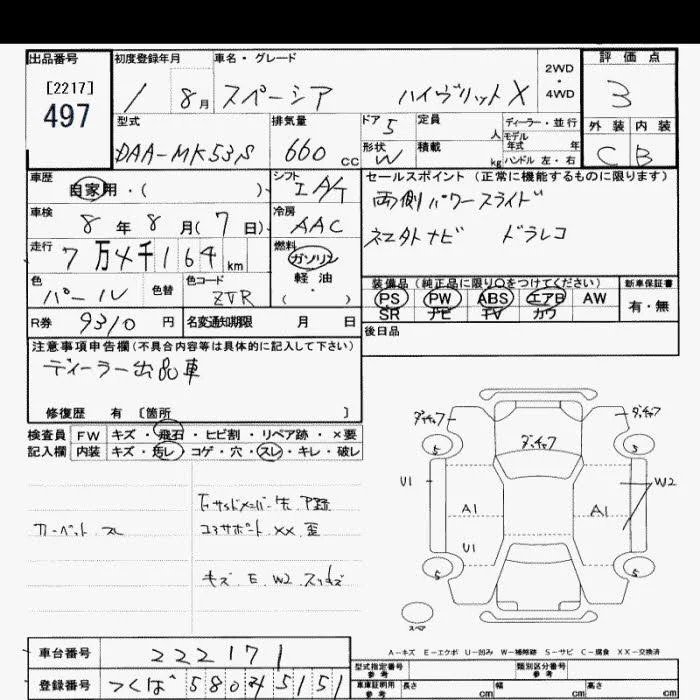 出品番号 初度登録年月 車名・グレード 2WD・4WD 評価点
[2217]
497
1 8月 スペーシア ハイブリット X 3
型式 排気量 ドア 5 定員 人 ディーラー・並行 外装 内装
DAA-MK53S 660 cc 形状 W 積載 kg モデル年式 年 ハンドル 左・右 C B
車歴 自家用・( ) シフト IA/T セールスポイント (正常に機能するものに限ります)
車検 8年 8月(7日) 冷房 AAC 両側パワースライド
走行 7万4千164km 燃料 ガソリン 軽油 ( ・ ) ドラレコ
色 パール 色替 色コード ZVR 装備品 (純正品に限り○をつけてください) 新車保証書
PS PW ABS エアB AW 有・無
SR ナビ TV カワ
R券 9310円 名変通知期限 月 日 後日品
注意事項申告欄(不具合内容等は具体的に記入して下さい)
ディーラー出品車
修復歴 有 〔箇所 〕
検査員 FW キズ・飛石・ヒビ割・リペア跡・×要
記入欄 内装 キズ・汚レ・コゲ・穴・スレ・キレ・破レ
カーペット スレ
コアサポート XX 歪
キズ E W2
ダッチャフ ダッチャフ
ダッチャフ
5 5
U1 W2
A1 A1
U1
5 5
スペア
A-キズ E-エクボ U-凹み W-補修跡 S-サビ C-腐食 XX-交換済
車台番号 222171 型式指定番号 参考 類別区分番号 参考
登録番号 つくば 580 4 5151 車庫証明用 参考 長さ cm 幅 cm 高さ cm